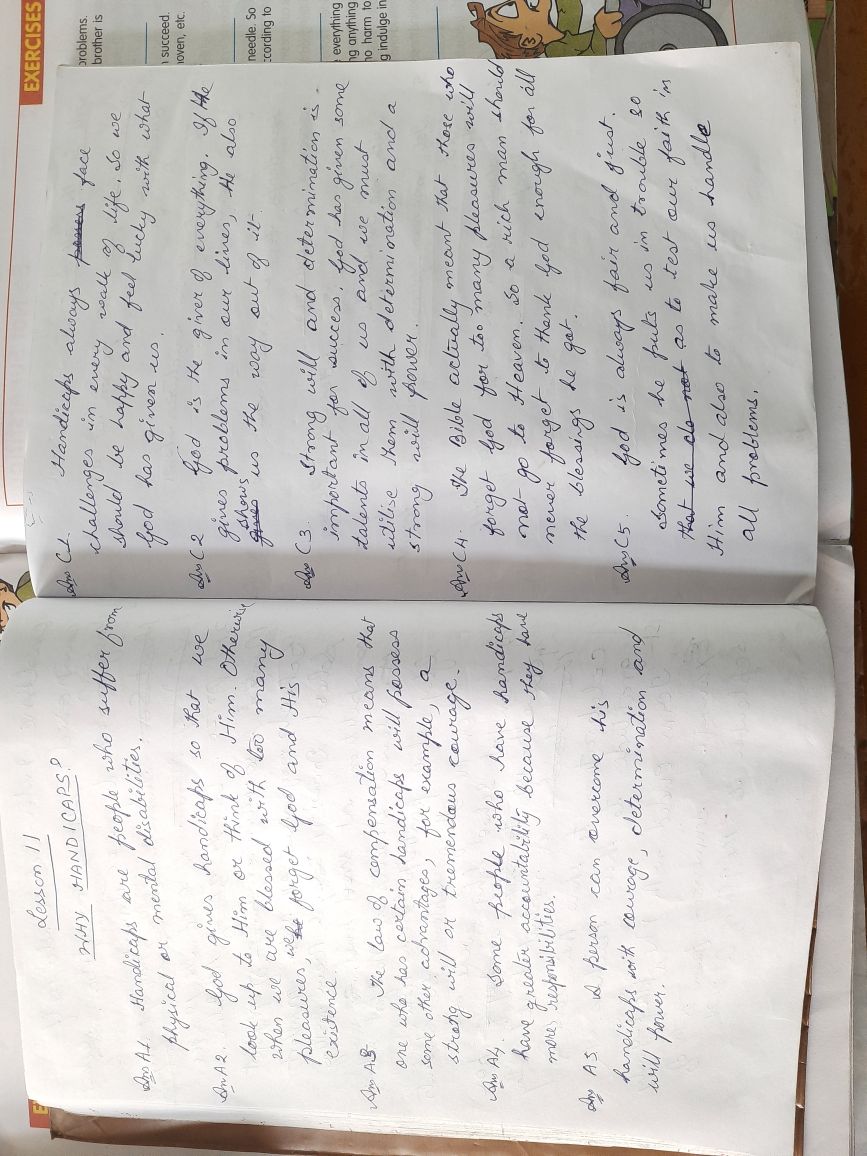 Lesson 11
WHY HANDICAPS?
Ans A1 Handicaps are people who suffer from
physical or mental disabilities.
Ans A2. God gives handicaps so that we
look up to Him or think of Him. Otherwise
when we are blessed with too many
pleasures, we forget God and His
existence.
Ans A3 The law of compensation means that
one who has certain handicaps will possess
some other advantages, for example, a
strong will or tremendous courage.
Ans A4. Some people who have handicaps
have greater accountability because they have
more responsibilities.
Ans A5 A person can overcome his
handicaps with courage, determination and
will power.
Ans C1. Handicaps always face
challenges in every walk of life. So we
should be happy and feel lucky with what
God has given us.
Ans C2 God is the giver of everything. If He
gives problems in our lives, He also
shows us the way out of it.
Ans C3. Strong will and determination is
important for success. God has given some
talents in all of us and we must
utilise them with determination and a
strong will power.
Ans C4. The Bible actually meant that those who
forget God for too many pleasures will
not go to Heaven. So a rich man should
never forget to thank God enough for all
the blessings he got.
Ans C5. God is always fair and just.
Sometimes he puts us in trouble so
that we do not as to test our faith in
Him and also to make us handle
all problems.
EXERCISES
problems.
brother is
succeed.
oven, etc.
needle. So
ccording to
everything
ng anything
no harm to
g indulge in